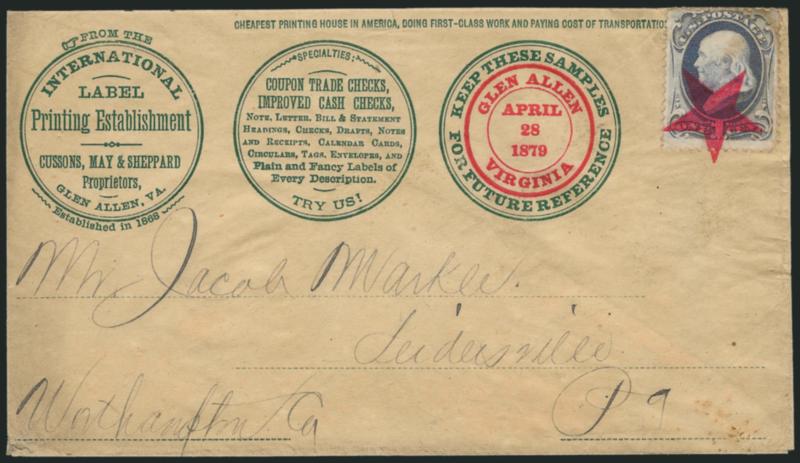 CHEAPEST PRINTING HOUSE IN AMERICA, DOING FIRST-CLASS WORK AND PAYING COST OF TRANSPORTATIO
FROM THE
INTERNATIONAL
LABEL
Printing Establishment
CUSSONS, MAY & SHEPPARD
Proprietors,
GLEN ALLEN, VA.
Established in 1868
SPECIALTIES:
COUPON TRADE CHECKS,
IMPROVED CASH CHECKS,
NOTE, LETTER, BILL & STATEMENT
HEADINGS, CHECKS, DRAFTS, NOTES
AND RECEIPTS, CALENDAR CARDS,
CIRCULARS, TAGS, ENVELOPES, AND
Plain and Fancy Labels of
Every Description.
TRY US!
KEEP THESE SAMPLES
FOR FUTURE REFERENCE
GLEN ALLEN
APRIL
28
1879
VIRGINIA
U.S. POSTAGE
ONE CENT
Mr Jacob Markle
Leidersville
Northampton Co
Pa